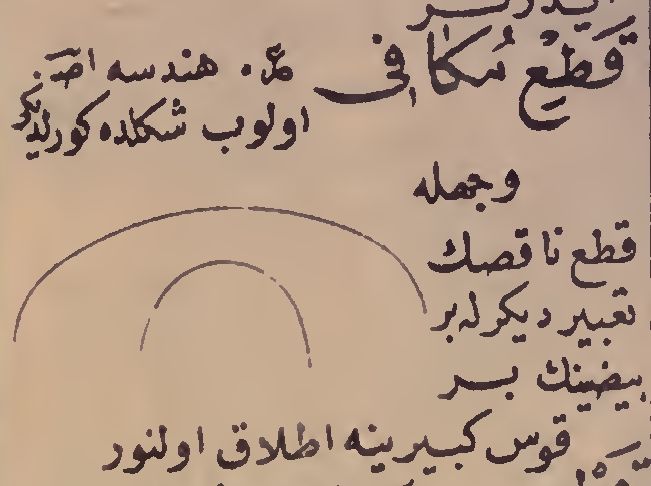 ايدرلر
قطع مكافى مذ. هندسه اصـ.
اولوب شكلده كورلديكى
وجهله
قطع ناقصك
تعبير ديكرله بر
بيضينك بر
قوس كبيرينه اطلاق اولنور